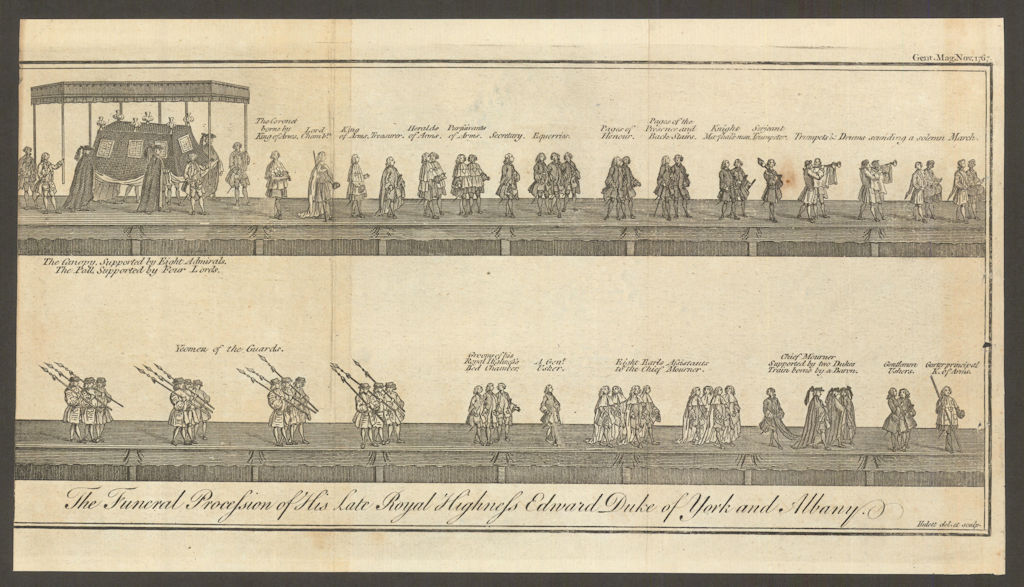 Gent. Mag. Nov. 1767.
The Coronet
borne by
King of Arms.
Lord
Chambn.
King
of Arms.
Treasurer.
Heralds
of Arms.
Pursuivants
of Arms.
Secretary.
Equerries.
Pages of
Honour.
Pages of the
Presence and
Back Stairs.
Knight
Marshals men.
Serjeant
Trumpeter.
Trumpets & Drums sounding a solemn March.
The Canopy, Supported by Eight Admirals.
The Pall, Supported by Four Lords.
Yeomen of the Guards.
Grooms of his
Royal Highness's
Bed Chamber.
A Gent.
Usher.
Eight Earls Assistants
to the Chief Mourner.
Chief Mourner
Supported by two Dukes
Train borne by a Baron.
Gentlemen
Ushers.
Garter principal
K. of Arms.
The Funeral Proceſsion of His late Royal Highneſs Edward Duke of York and Albany.
Hulett del. et sculp.